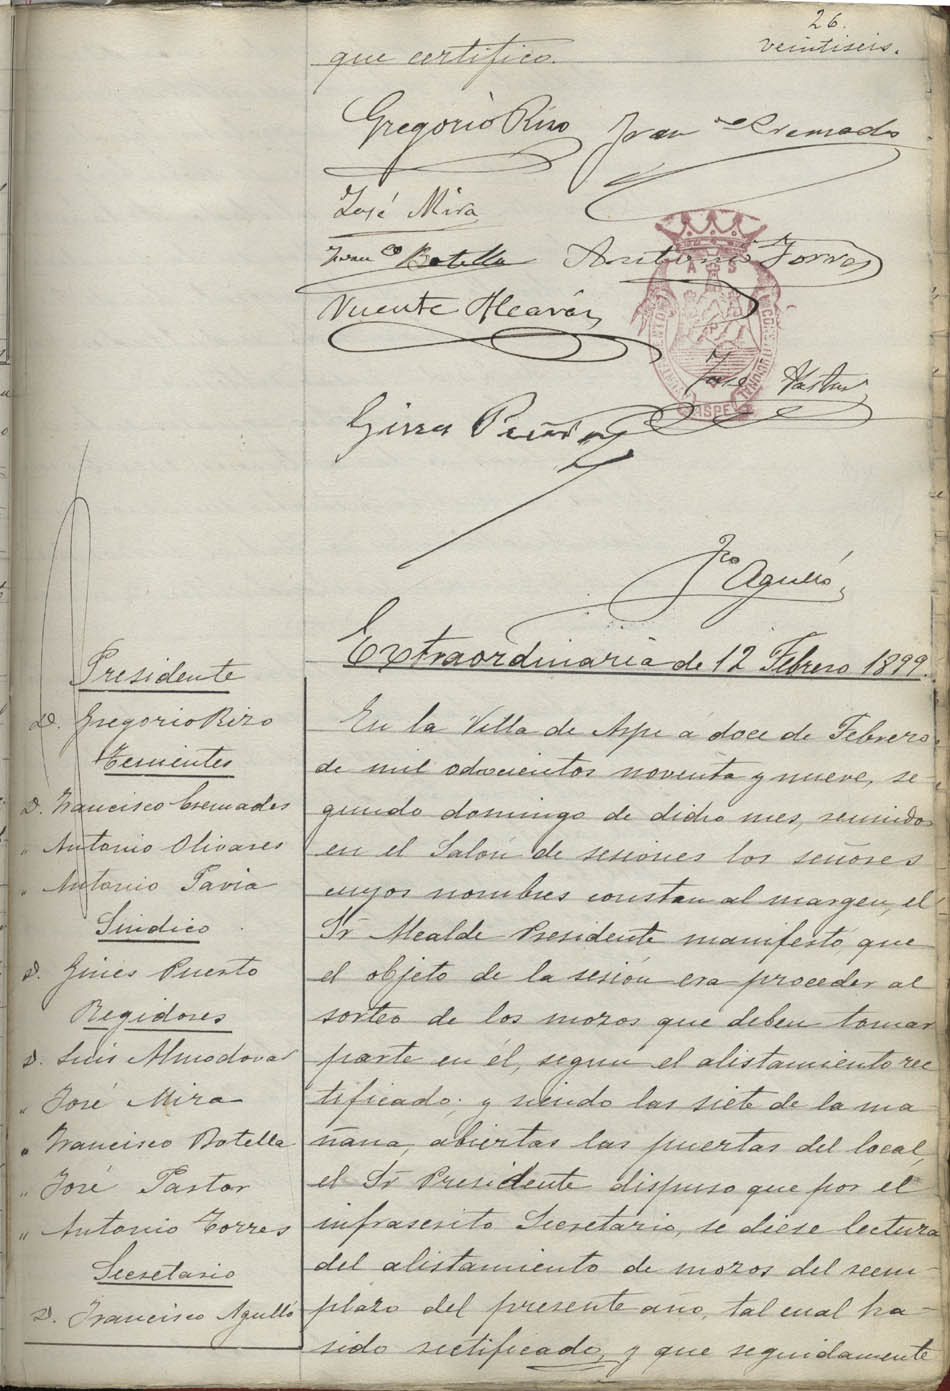 26.
veintiseis.
que certifico.
Gregorio Rizo
Fran co Cremades
José Mira
Fran co Botella
Antonio Torres
Vicente Alcaráz
AS
ASPE
José Pastor
Gines Puerto
Fco Agulló
Extraordinaria de 12 Febrero 1899.
Presidente
D. Gregorio Rizo
Tenientes
D. Francisco Cremades
" Antonio Olivares
" Antonio Pavia
Sindico
D. Gines Puerto
Regidores
D. Luis Almodovar
" José Mira
" Francisco Botella
" José Pastor
" Antonio Torres
Secretario
D. Francisco Agulló
En la Villa de Aspe á doce de Febrero
de mil ochocientos noventa y nueve, se-
gundo domingo de dicho mes, reunidos
en el Salón de sesiones los señores
cuyos nombres constan al margen, el
Sr Alcalde Presidente manifestó que
el objeto de la sesión era proceder al
sorteo de los mozos que deben tomar
parte en él, segun el alistamiento rec
tificado; y siendo las siete de la ma
ñana, abiertas las puertas del local,
el Sr Presidente dispuso que por el
infrascrito Secretario, se diese lectura
del alistamiento de mozos del reem-
plazo del presente año, tal cual ha
sido rectificado, y que seguidamente